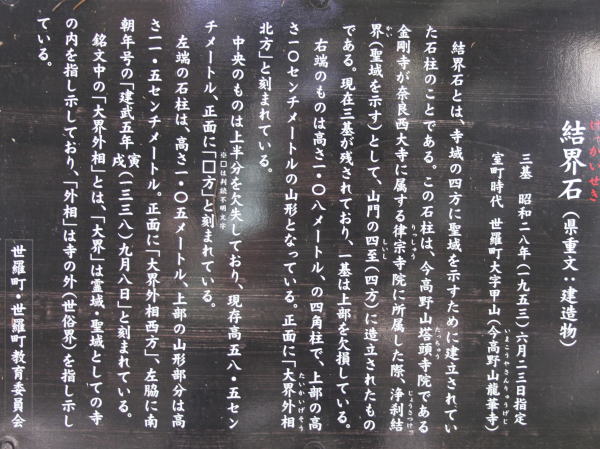 結界石（県重文：建造物）
けっかいせき
三基　昭和二八年（一九五三）六月二三日指定
室町時代　世羅町大字甲山（今高野山龍華寺）
いまこうやさんりゅうげじ
結界石とは、寺域の四方に聖域を示すために建立されてい
た石柱のことである。この石柱は、今高野山塔頭寺院である
たっちゅう
金剛寺が奈良西大寺に属する律宗寺院に所属した際、浄利結
りっしゅう
じょうさつけっ
界（聖域を示す）として、山門の四至（四方）に造立されたもの
かい
しいし
である。現在三基が残されており、一基は上部を欠損している。
右端のものは高さ一・〇八メートル、の四角柱で、上部の高
さ一〇センチメートルの山形となっている。正面に「大界外相
たいかいげそう
北方」と刻まれている。
中央のものは上半分を欠失しており、現存高五八・五セン
チメートル、正面に「□方」と刻まれている。
※□は判読不明文字
左端の石柱は、高さ一・〇五メートル、上部の山形部分は高
さ一一・五センチメートル。正面に「大界外相西方」、左脇に南
朝年号の「建武五年戊寅（一三三八）九月八日」と刻まれている。
銘文中の「大界外相」とは、「大界」は霊域・聖域としての寺
の内を指し示しており、「外相」は寺の外（世俗界）を指し示し
ている。
世羅町・世羅町教育委員会